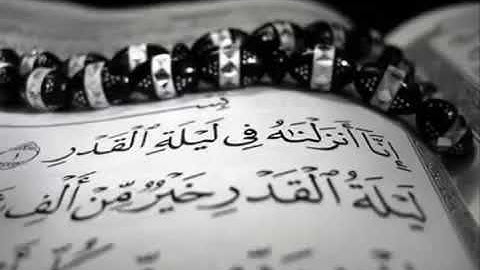 إِنَّا أَنزَلْنَٰهُ فِى لَيْلَةِ ٱلْقَدْرِ ١
لَيْلَةُ ٱلْقَدْرِ خَيْرٌ مِّنْ أَلْفِ